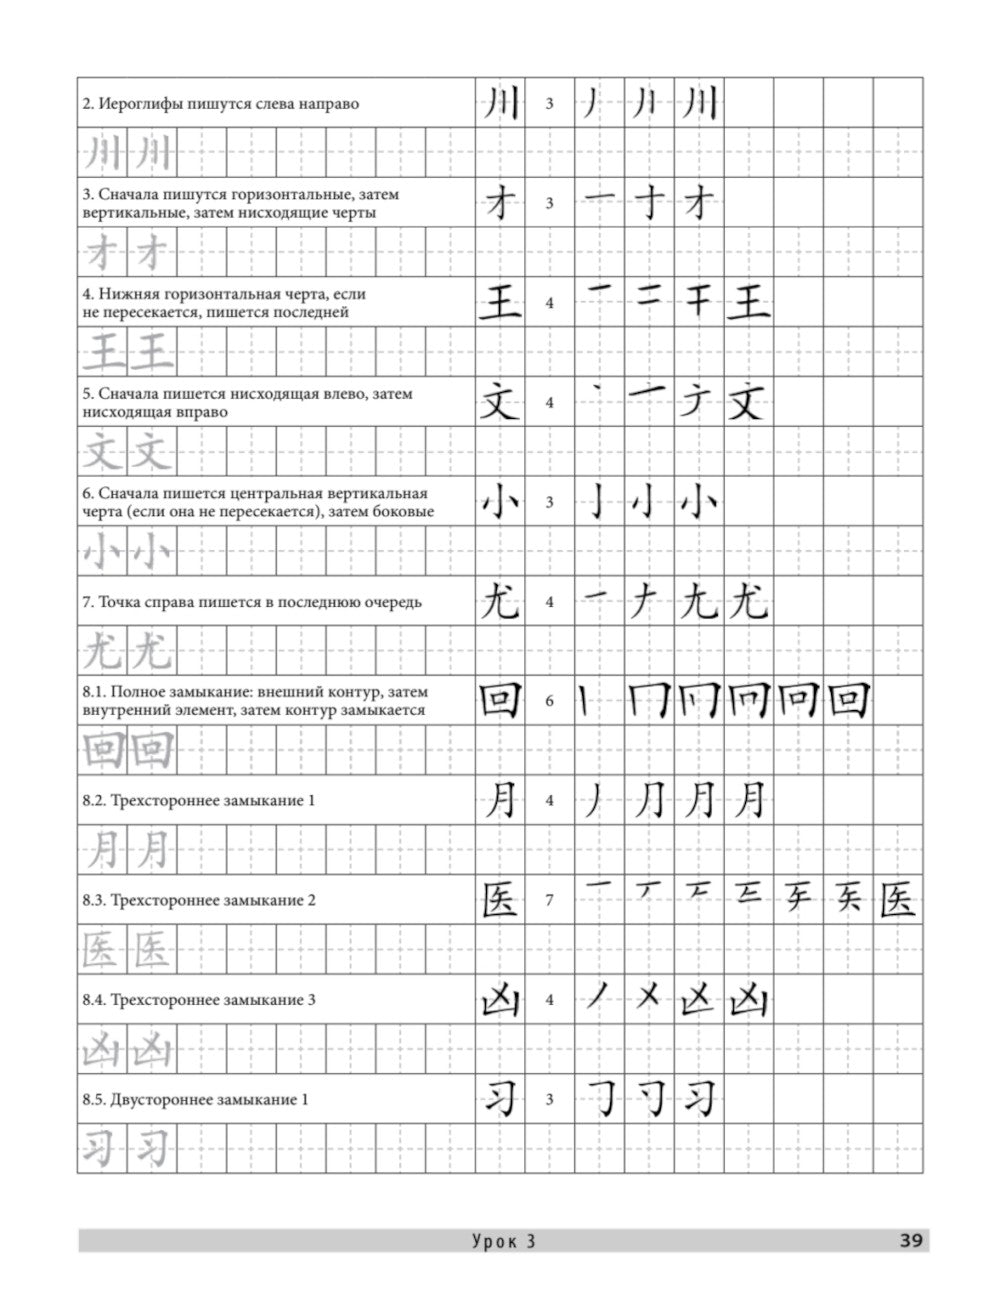 2. Иероглифы пишутся слева направо 川 3 丿 川
川 川
3. Сначала пишутся горизонтальные, затем
вертикальные, затем нисходящие черты 才 3 一 十 才
才 才
4. Нижняя горизонтальная черта, если
не пересекается, пишется последней 王 4 一 二 干 王
王 王
5. Сначала пишется нисходящая влево, затем
нисходящая вправо 文 4 丶 一 文
文 文
6. Сначала пишется центральная вертикальная
черта (если она не пересекается), затем боковые 小 3 亅 小
小 小
7. Точка справа пишется в последнюю очередь 尤 4 一 𠂇 尢 尤
尤 尤
8.1. Полное замыкание: внешний контур, затем
внутренний элемент, затем контур замыкается 回 6 丨 冂 回
回 回
8.2. Трехстороннее замыкание 1 月 4 丿 ⺆ 月
月 月
8.3. Трехстороннее замыкание 2 医 7 一 医
医 医
8.4. Трехстороннее замыкание 3 凶 4 丿 㐅 凶
凶 凶
8.5. Двустороннее замыкание 1 习 3 𠃌 习
习 习
Урок 3 39